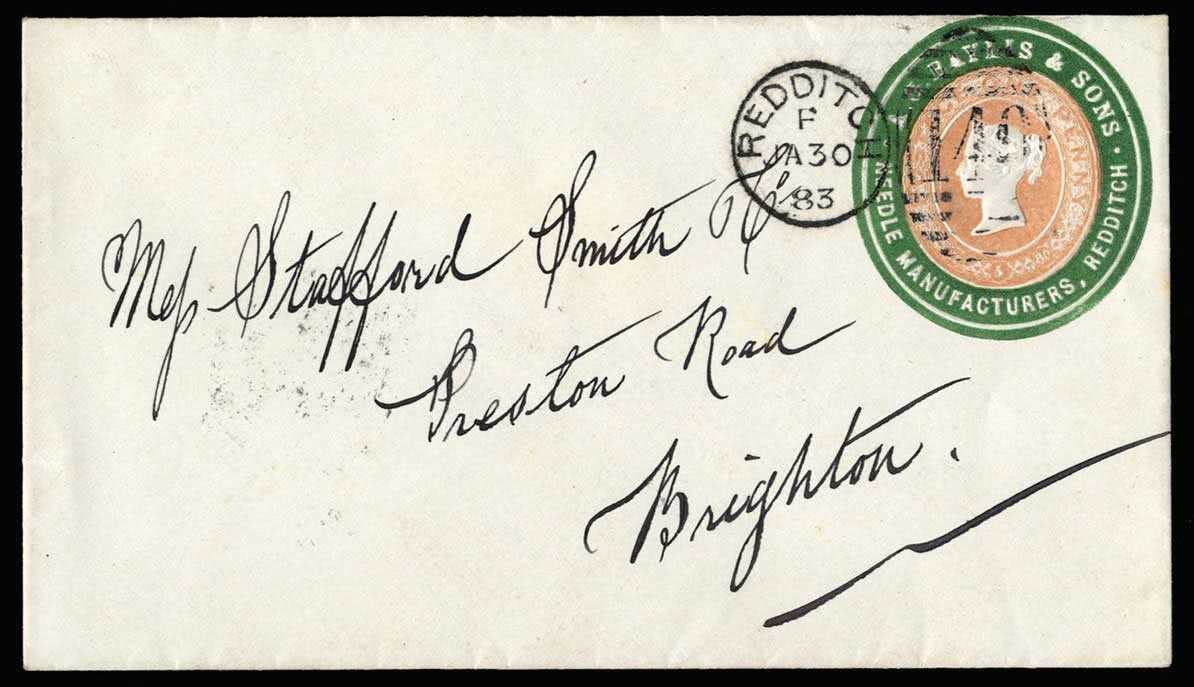 REDDITCH
F
JA30
83
BAYLIS & SONS · NEEDLE MANUFACTURERS, REDDITCH
Mess Stafford Smith & Co
Preston Road
Brighton.